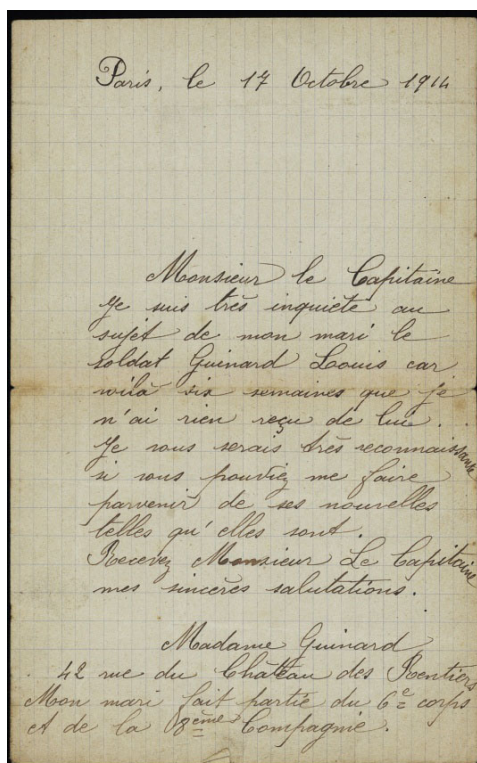 Paris, le 17 Octobre 1914
Monsieur le Capitaine
Je suis très inquiète au
sujet de mon mari le
soldat Guinard Louis car
voilà six semaines que je
n'ai rien reçu de lui..
Je vous serais très reconnaissante
si vous pouviez me faire
parvenir de ses nouvelles
telles qu'elles sont.
Recevez Monsieur Le Capitaine
mes sincères salutations.
Madame Guinard
42 rue du Château des Rentiers
Mon mari fait partie du 6e corps
et de la 8ème Compagnie.